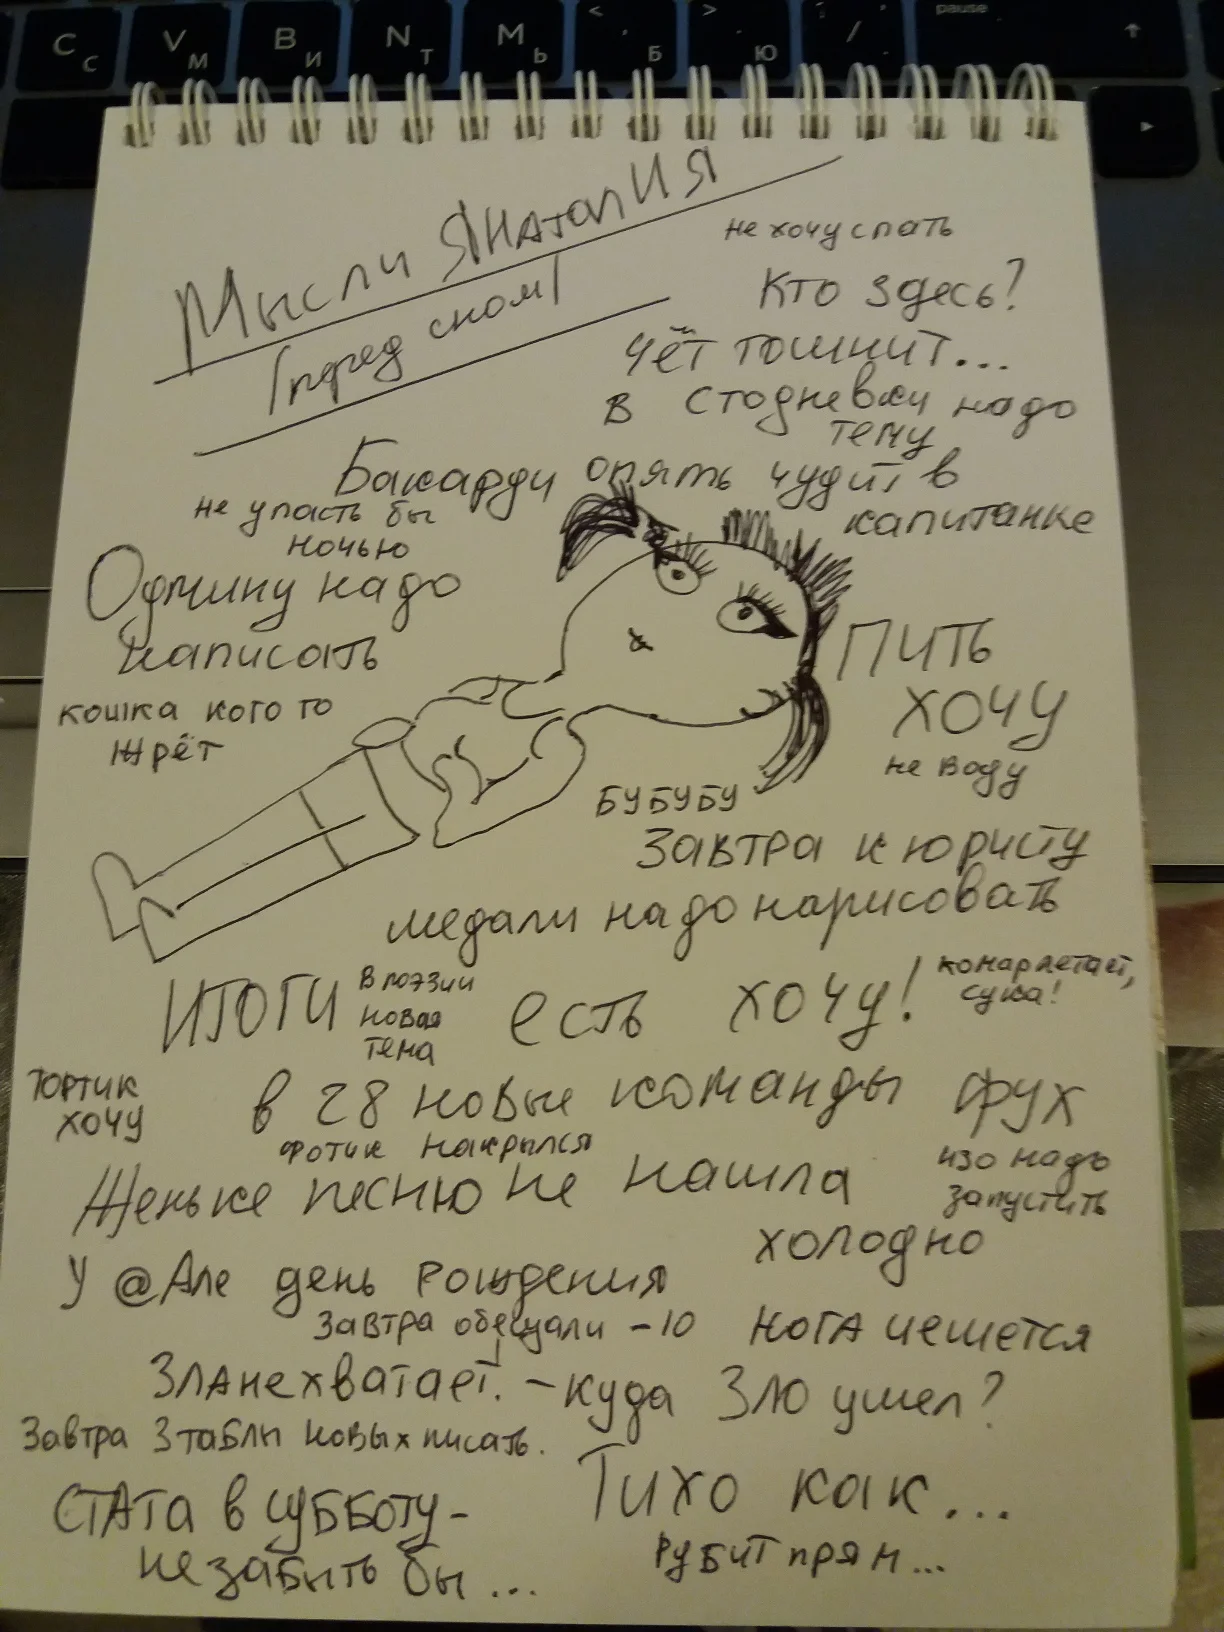 C С
V М
B И
N Т
M Ь
< , Б
> . Ю
/
pause
Мысли ЯНаталИЯ
/перед сном/
не хочу спать
Кто здесь?
Чёт тошнит...
в стодневки надо
тему
Бакарди опять чудит в
капитанке
не упасть бы
ночью
Одмину надо
написать
кошка кого то
жрёт
ПИТЬ
ХОЧУ
не воду
БУБУБУ
Завтра к юристу
медали надо нарисовать
ИТОГИ
в поэзии
новая
тема
есть хочу!
комар летает,
сука!
тортик
хочу
в 28 новые команды
фух
фотик накрылся
Женьке песню не нашла
изо надь
запустить
холодно
У @Але день рождения
завтра обещали -10
нога чешется
Зла не хватает. - куда Зло ушел?
Завтра 3 таблы новых писать.
Тихо как...
СТАТа в субботу -
не забыть бы...
рубит прям...